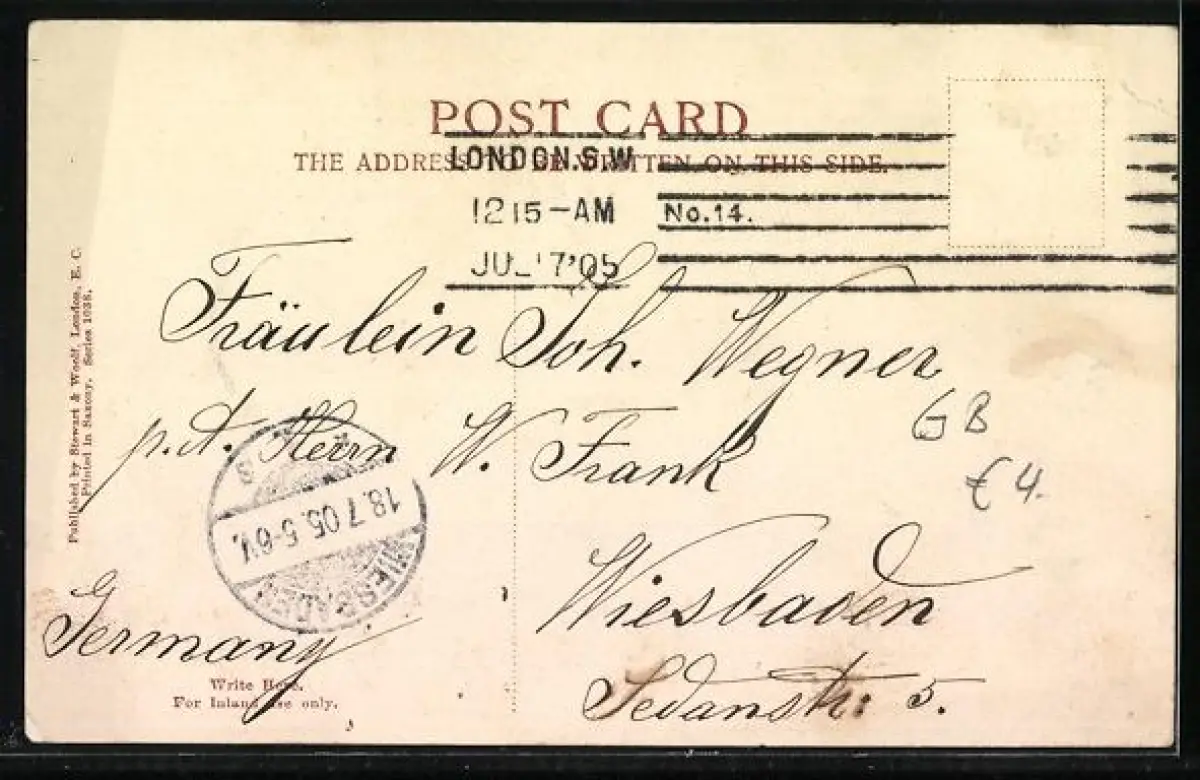 POST CARD
THE ADDRESS TO BE WRITTEN ON THIS SIDE.
LONDON.S.W
12 15-AM
No.14.
JUL 17'05
Fräulein Joh. Wegner
p.A. Herrn W. Frank
GB
€4.
18.7.05.5-6V.
WIESBADEN
Wiesbaden
Germany
Sedanstr: 5.
Write Here.
For Inland Use only.
Published by Stewart & Woolf, London, E. C.
Printed in Saxony. Series 1038.